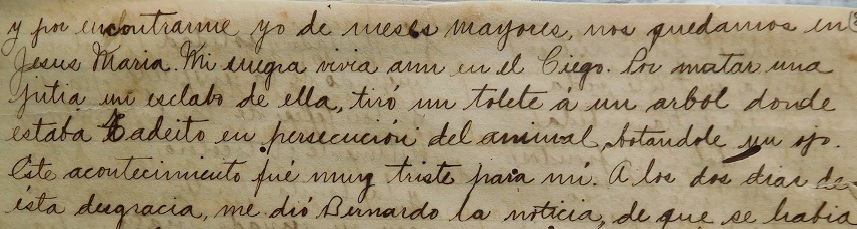 y por encontrarme yo de meses mayores, nos quedamos en
Jesus Maria. Mi suegra vivia aun en el Ciego. Por matar una
jutia un esclabo de ella, tiró un tolete á un arbol donde
estaba Tadeito en persecución del animal, botandole un ojo.
Este acontecimiento fué muy triste para mi. A los dos dias de
ésta desgracia, me dió Bernardo la noticia, de que se habia